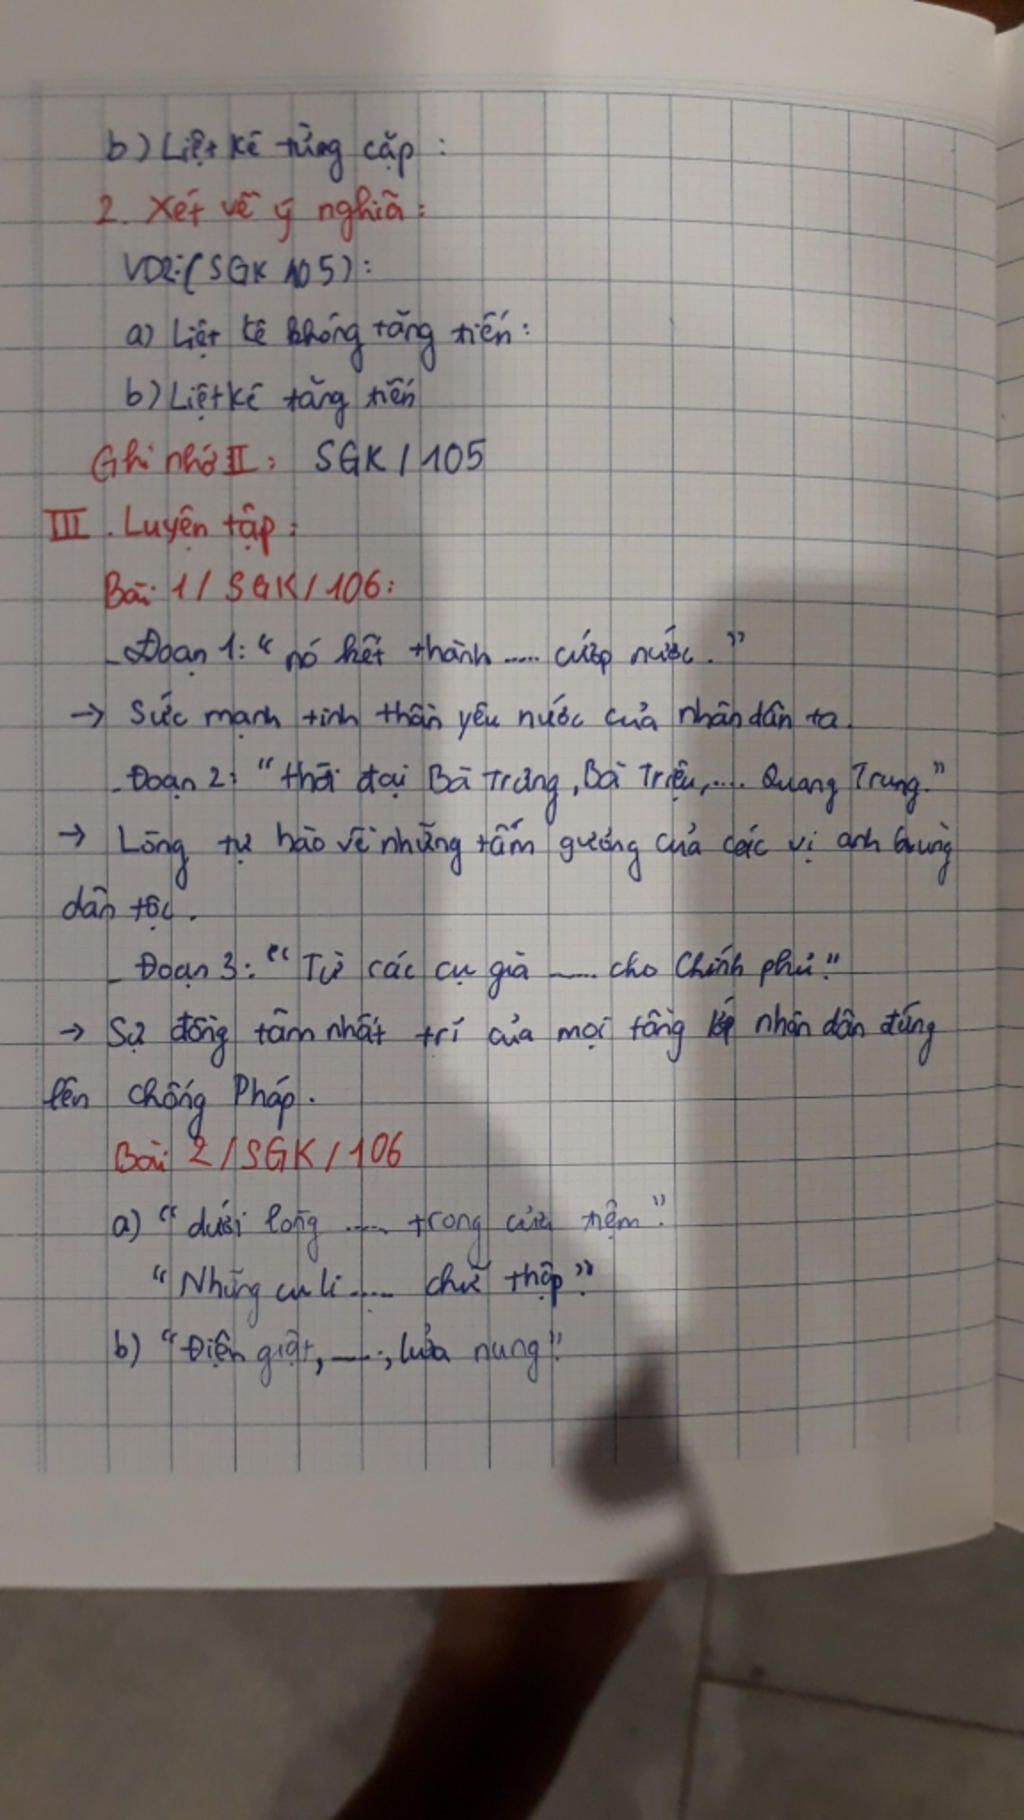 b) Liệt kê từng cặp :
2. Xét về ý nghĩa :
VD2: (SGK 105) :
a) Liệt kê không tăng tiến :
b) Liệt kê tăng tiến
Ghi nhớ II : SGK / 105
III . Luyện tập :
Bài 1 / SGK / 106 :
- Đoạn 1 : " nó kết thành ..... cướp nước . "
→ Sức mạnh tinh thần yêu nước của nhân dân ta .
- Đoạn 2 : " thời đại Bà Trưng , Bà Triệu , .... Quang Trung . "
→ Lòng tự hào về những tấm gương của các vị anh hùng
dân tộc .
- Đoạn 3 : " Từ các cụ già ..... cho Chính phủ . "
→ Sự đồng tâm nhất trí của mọi tầng lớp nhân dân đứng
lên chống Pháp .
Bài 2 / SGK / 106
a) " dưới lòng ..... trong cửa tiệm " .
" Những cu li ..... chữ thập " .
b) " Điện giật , ..... , lửa nung " .